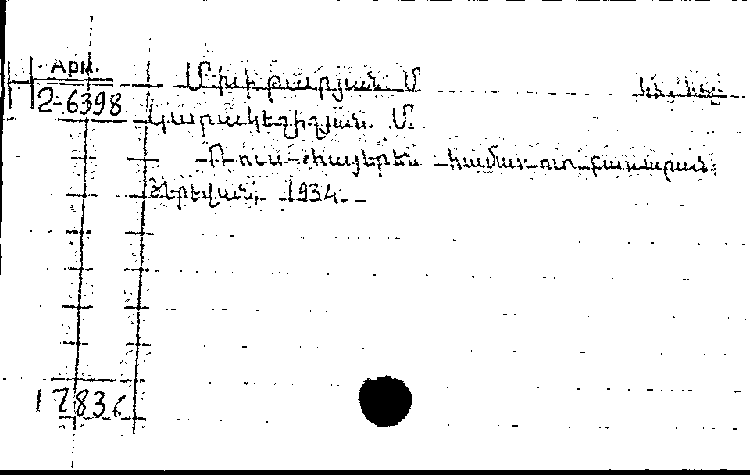 Арм.
2-6398
Մխիթարյան Մ
Կարակեզիզյան Մ.
Ռուս-հայերեն համառոտ բառարան:
Երեվան, 1934
17836